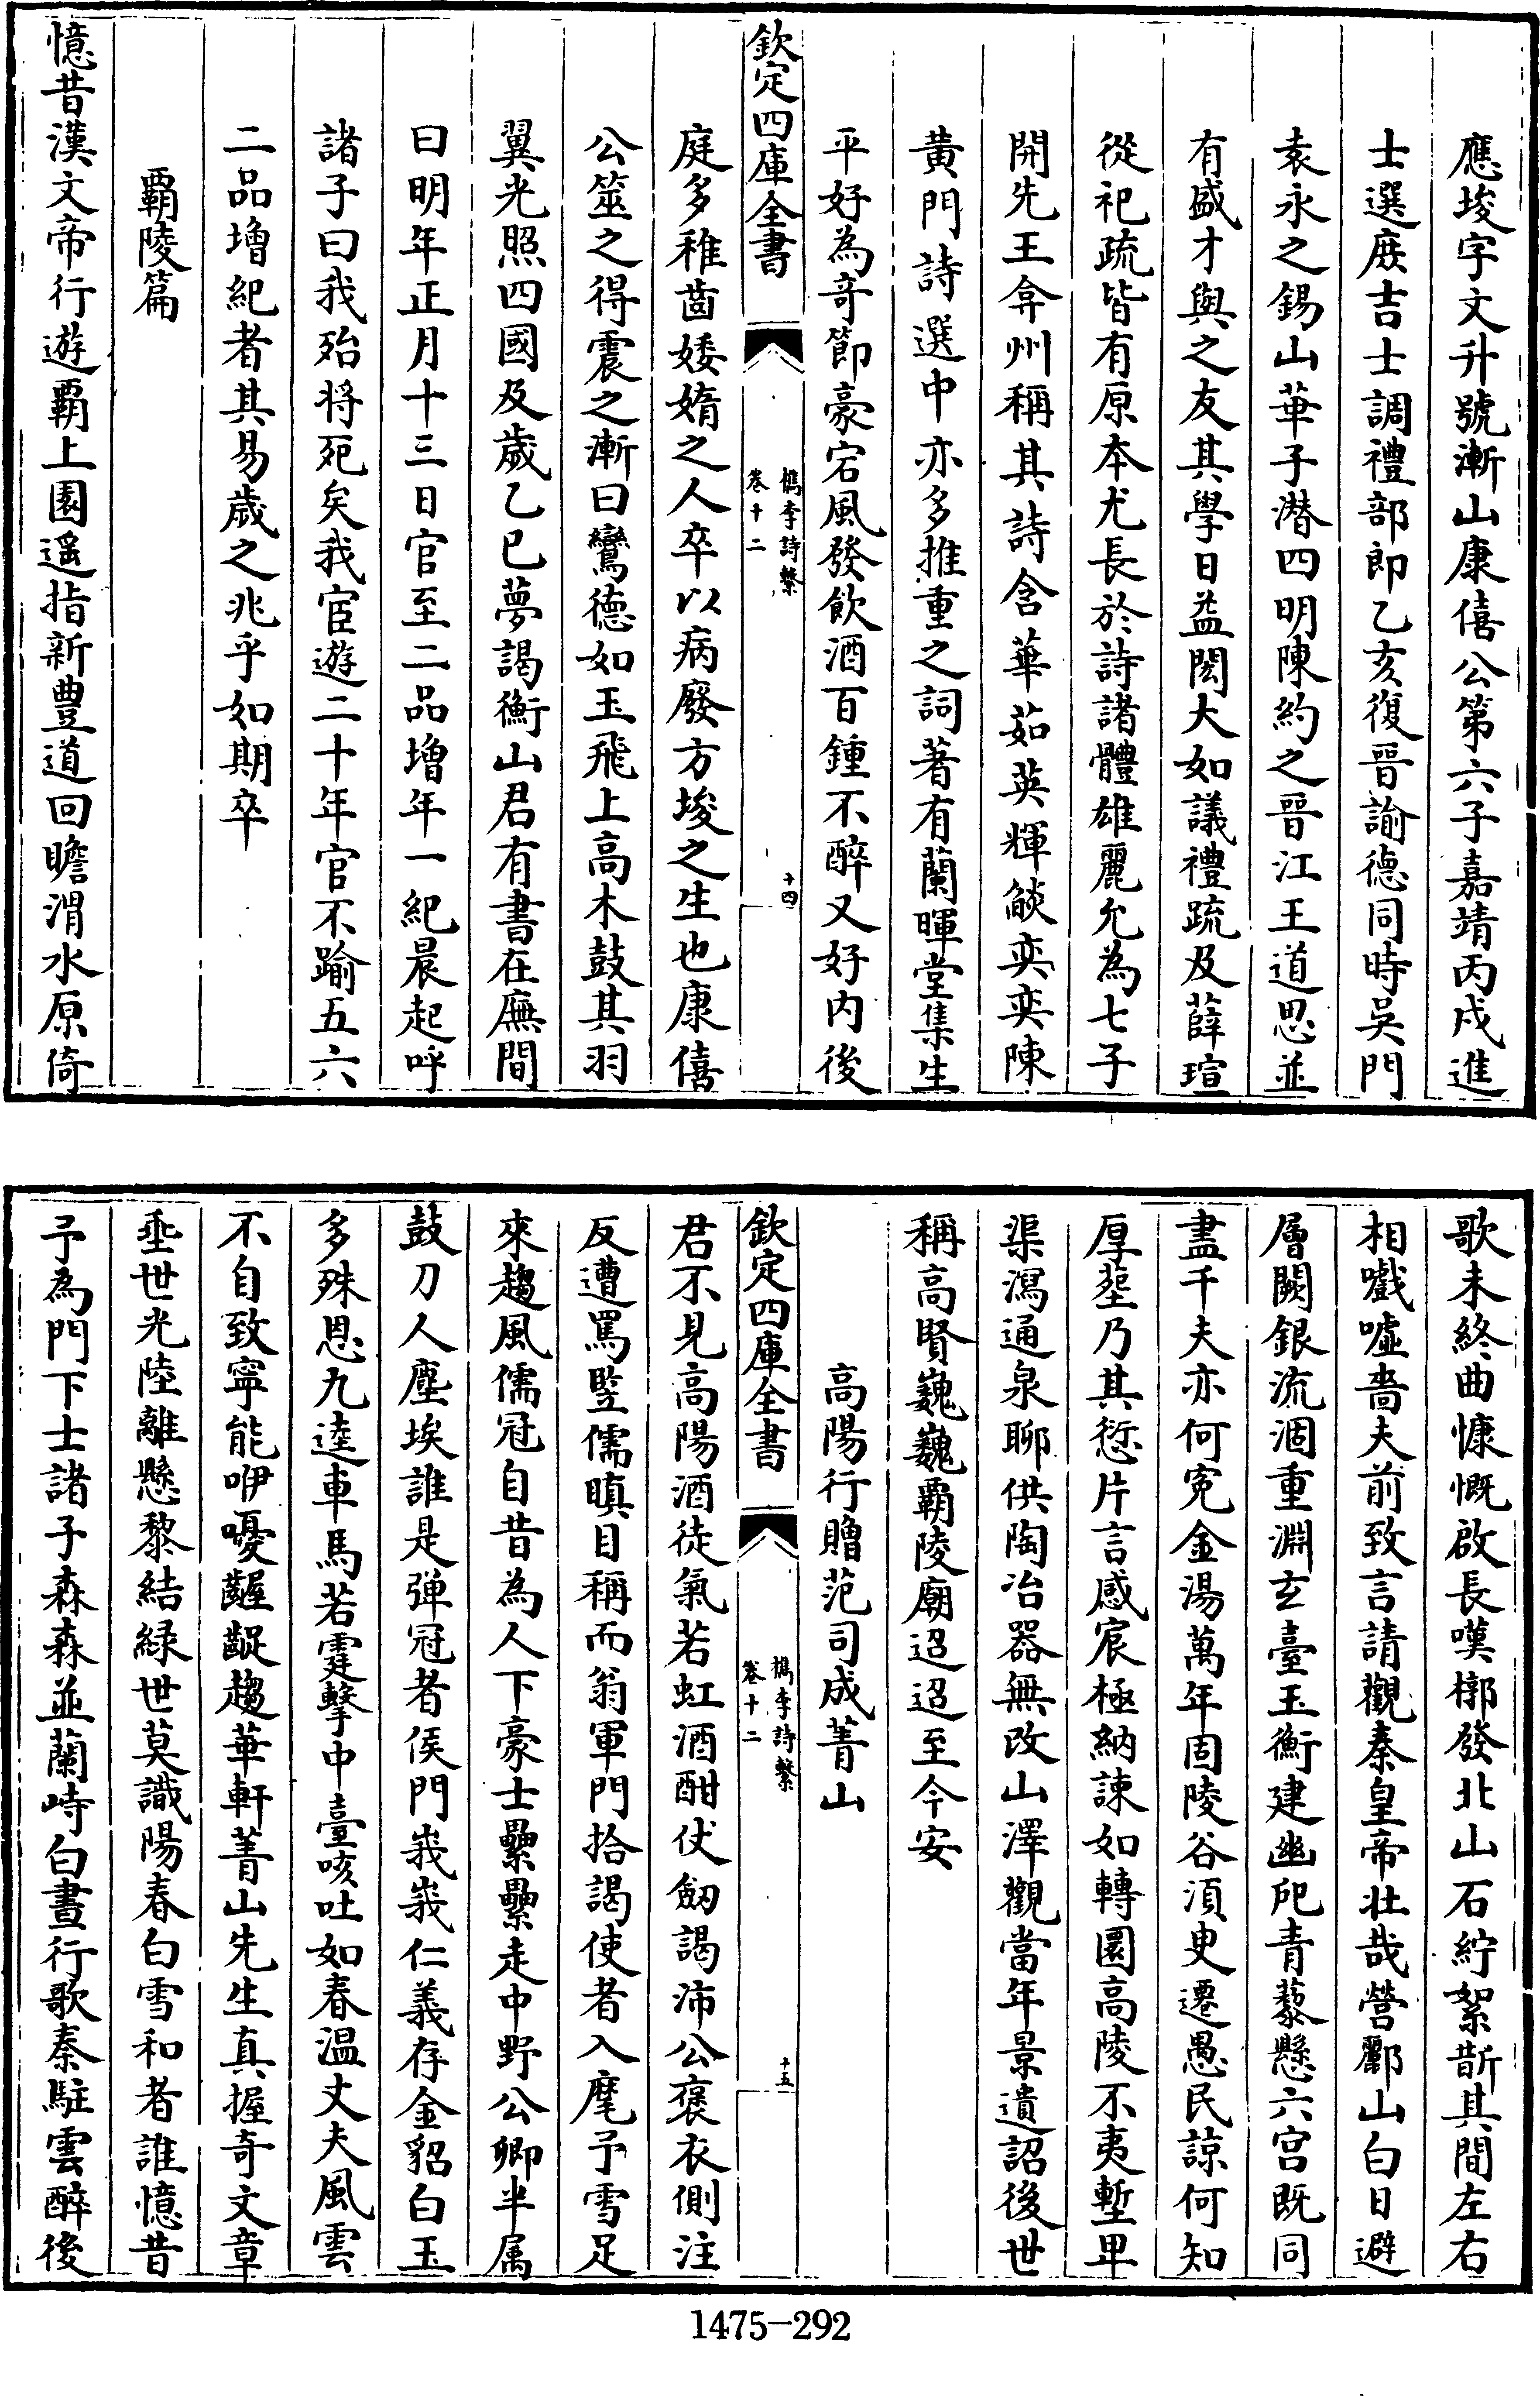 應埈字文升號漸山康僖公第六子嘉靖丙戌進
士選庻吉士調禮部郎乙亥復晉諭德同時吳門
袁永之錫山華子潜四明陳約之晉江王道思並
有盛才與之友其學日益閎大如議禮疏及薛瑄
從祀疏皆有原本尤長於詩諸體雄麗允為七子
開先王弇州稱其詩含華茹英輝燄奕奕陳
黄門詩選中亦多推重之詞著有蘭暉堂集生
平好為竒節豪宕風發飲酒百鍾不醉又好内後
欽定四庫全書
檇李詩繫
卷十二
十四
庭多稚齒婑媠之人卒以病廢方埈之生也康僖
公筮之得震之漸曰鸞德如玉飛上高木鼓其羽
翼光照四國及歲乙巳夢謁衡山君有書在廡間
曰明年正月十三日官至二品增年一紀晨起呼
諸子曰我殆将死矣我宦遊二十年官不踰五六
二品增紀者其易歲之兆乎如期卒
覇陵篇
憶昔漢文帝行遊覇上園遥指新豊道回瞻渭水原倚
歌未終曲慷慨啟長嘆槨發北山石紵絮斮其間左右
相嚱嘘嗇夫前致言請觀秦皇帝壮哉營酈山白日避
層闕銀流涸重淵玄臺玉衡建幽戹青藜懸六宫既同
盡千夫亦何寃金湯萬年固陵谷湏臾遷愚民諒何知
厚塟乃其愆片言感宸極納諫如轉圜高陵不夷塹畢
渠瀉通泉聊供陶冶器無改山澤觀當年景遺詔後世
稱高賢巍巍覇陵廟迢迢至今安
高陽行贈范司成菁山
欽定四庫全書
檇李詩繫
卷十二
十五
君不見高陽酒徒氣若虹酒酣仗劒謁沛公褒衣側注
反遭罵竪儒瞋目稱而翁軍門拾謁使者入麾予雪足
來趨風儒冠自昔為人下豪士纍纍走中野公卿半属
鼓刀人塵埃誰是彈冠者侯門峩峩仁義存金貂白玉
多殊恩九逵車馬若霆擊中臺咳吐如春温丈夫風雲
不自致寧能咿嚘齷齪趨華軒菁山先生真握奇文章
垂世光陸離懸黎結緑世莫識陽春白雪和者誰憶昔
予為門下士諸子森森並蘭峙白晝行歌秦駐雲醉後
1475-292